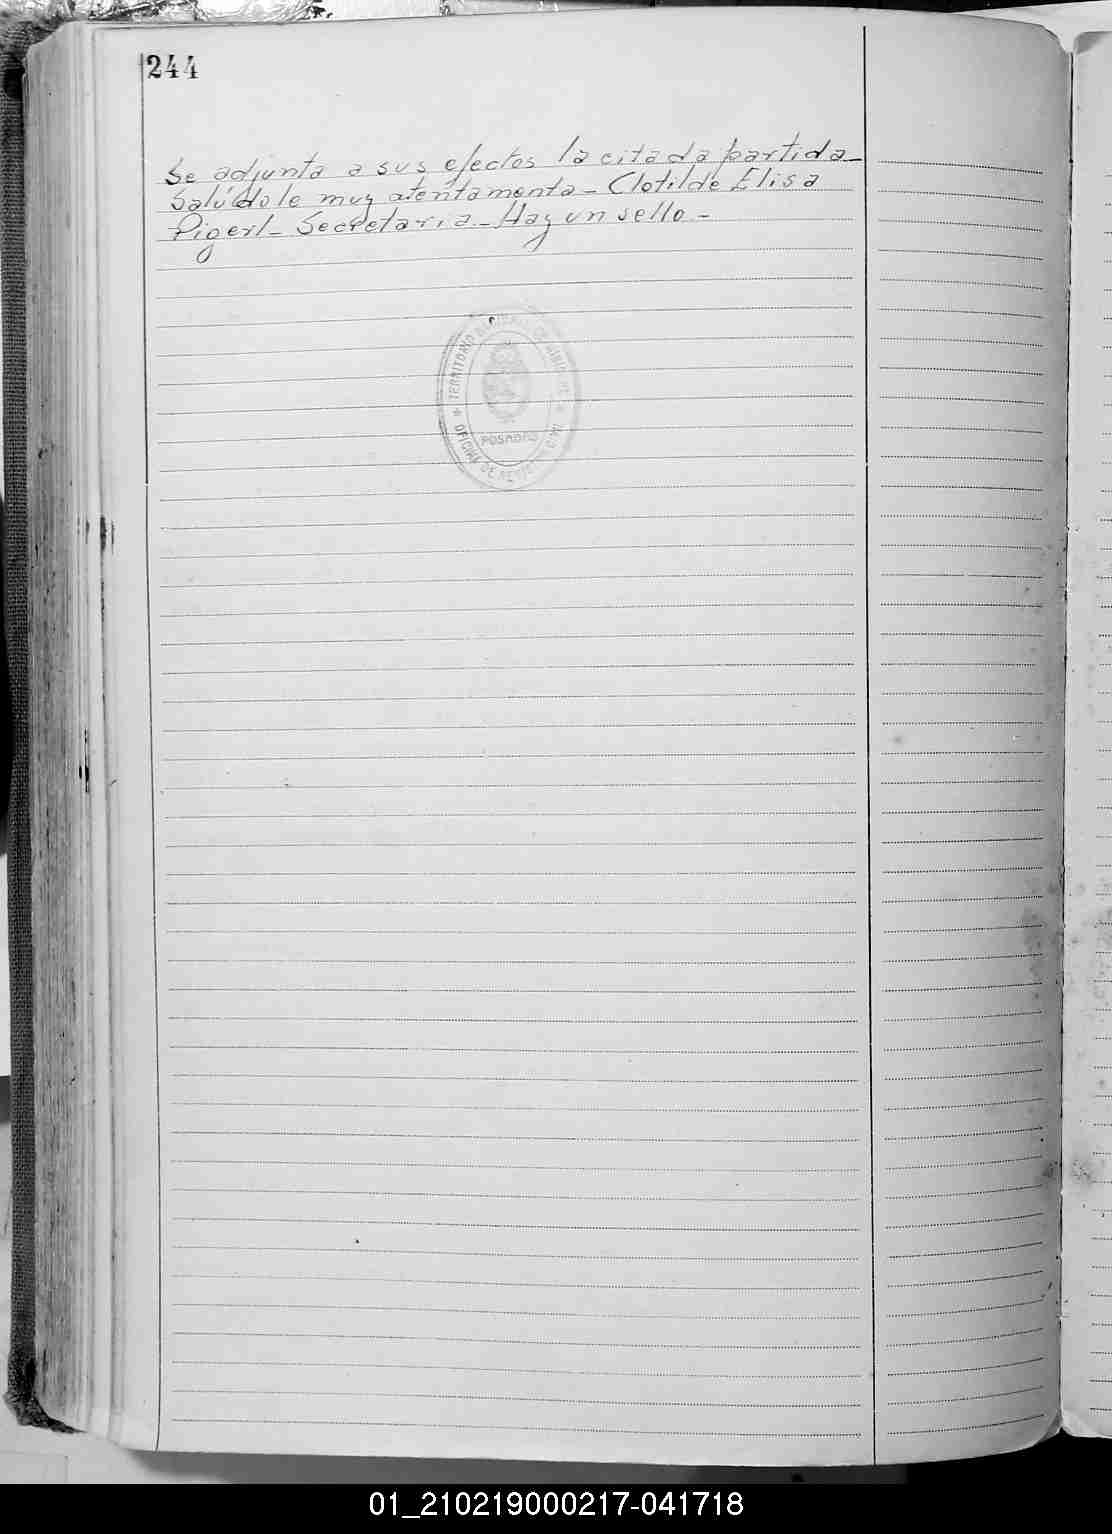 244
Se adjunta a sus efectos la citada partida_
Salúdole muy atentamente - Clotilde Elisa
Pigerl - Secretaria - Hay un sello -
TERRITORIO
POSADAS
OFICINA DE
01_210219000217-041718